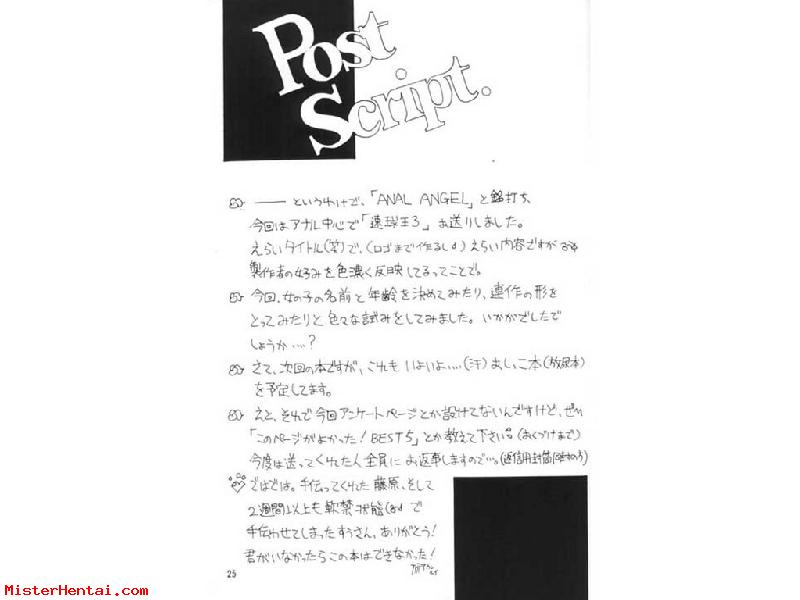 Post
Script.
── というわけで、「ANAL ANGEL」と銘打ち、
今回はアナル中心で「蹴球王3」お送りしました。
えらいタイトル(笑)で、(ロゴまで作るし)えらい内容ですが
製作者の好みを色濃く反映してるってことで。
今回、女の子の名前と年齢を決めてみたり、連作の形を
とってみたりと色々な試みをしてみました。いかがでしたで
しょうか…?
さて、次回の本ですが、これもいよいよ…(汗)おしっこ本(放尿本)
を予定してます。
えと、それで今回アンケートページとか設けてないんですけど、ぜひ
「このページがよかった!BEST5」とか教えて下さい。(おくづけまで)
今度は送ってくれた人全員にお返事しますので…。(返信用封筒
ではでは。手伝ってくれた藤原、そして
2週間以上も軟禁状態で
手伝わせてしまったすうさん、ありがとう!
君がいなかったらこの本はできなかった!
25
MisterHentai.com